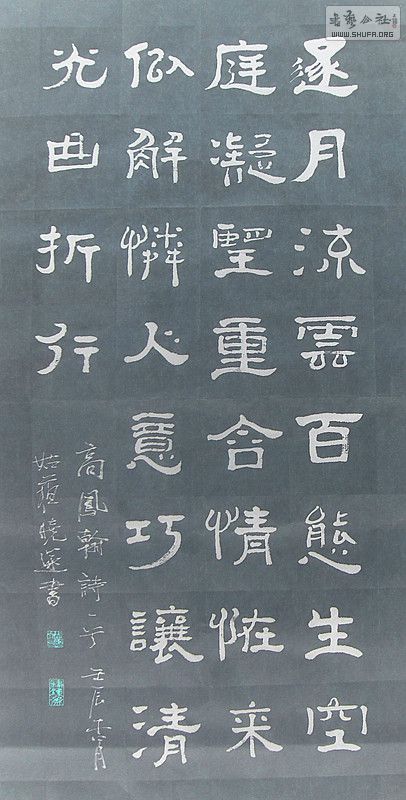 逐月流雲百態生空
庭凝望重含情恠来
似解憐人意巧讓清
光曲折行
高鳳翰詩 壬辰 月
姑蘓曉 書
书艺公社
WWW.SHUFA.ORG